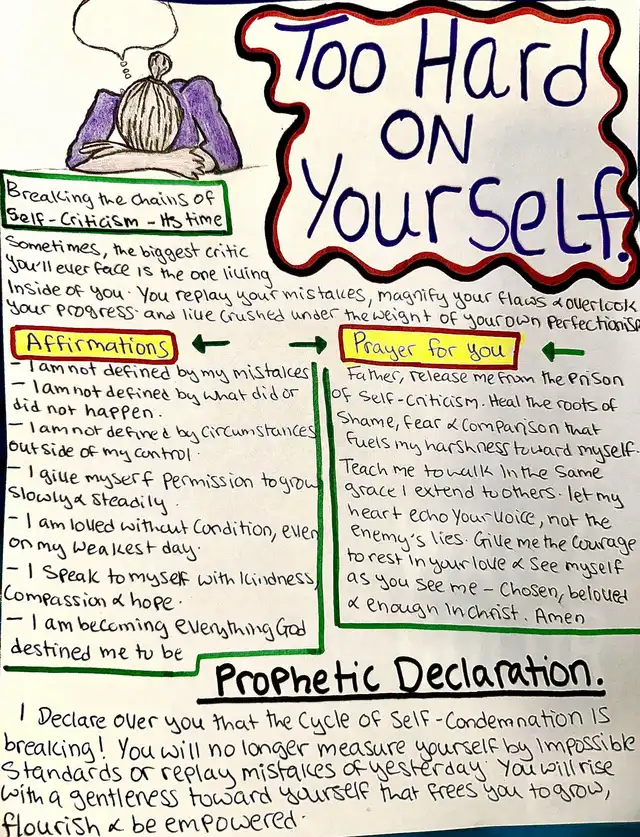 Too Hard
ON
Yourself.
Breaking the chains of
Self-Criticism - Its time
Sometimes, the biggest critic
you'll ever face is the one living
Inside of you. You replay your mistakes, magnify your flaws & overlook
your progress. and live crushed under the weight of your own Perfectionis
Affirmations
Prayer for you
- I am not defined by my mistakes
- I am not defined by what did or
did not happen.
- I am not defined by Circumstances
outside of my control.
- I give myself permission to grow
slowly & steadily.
- I am loved without Condition, even
on my weakest day.
- I speak to myself with kindness,
Compassion & hope.
- I am becoming everything God
destined me to be
Father, release me from the Prison
of Self-Criticism. Heal the roots of
Shame, fear & Comparison that
fuels my harshness toward myself.
Teach me to walk in the same
grace I extend to others. let my
heart echo your voice, not the
enemy's lies. Give me the Courage
to rest in your love & see myself
as you see me - Chosen, beloved
& enough in Christ. Amen
Prophetic Declaration.
I Declare over you that the Cycle of Self-Condemnation IS
breaking! You will no longer measure yourself by Impossible
Standards or replay mistakes of yesterday. You will rise
with a gentleness toward yourself that frees you to grow,
flourish & be empowered.